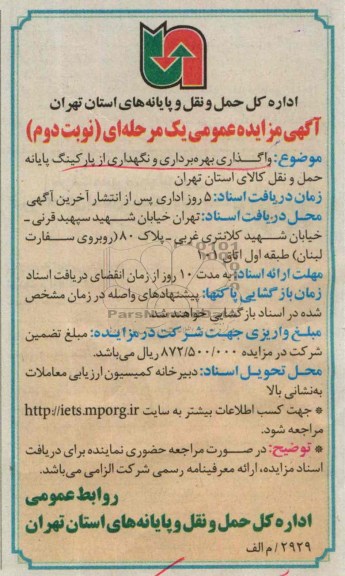 اداره کل حمل و نقل و پایانه‌های استان تهران
آگهی مزایده عمومی یک مرحله‌ای (نوبت دوم)
موضوع: واگذاری بهره‌برداری و نگهداری از پارکینگ پایانه
حمل و نقل کالای استان تهران
زمان دریافت اسناد: ۵ روز اداری پس از انتشار آخرین آگهی
محل دریافت اسناد: تهران خیابان شهید سپهبد قرنی ـ
خیابان شهید کلانتری غربی - پلاک ۸۰ (روبروی سفارت
لبنان) طبقه اول اتاق
مهلت ارائه اسناد: به مدت ۱۰ روز از زمان انقضای دریافت اسناد
زمان بازگشایی پاکتها: پیشنهادهای واصله در زمان مشخص
شده در اسناد بازگشایی خواهند شد.
مبلغ واریزی جهت شرکت در مزایده: مبلغ تضمین
شرکت در مزایده ۸۷۲/۵۰۰/۰۰۰ ریال می‌باشد.
محل تحویل اسناد: دبیرخانه کمیسیون ارزیابی معاملات
به‌نشانی بالا
* جهت کسب اطلاعات بیشتر به سایت http://iets.mporg.ir
مراجعه شود.
* توضیح: در صورت مراجعه حضوری نماینده برای دریافت
اسناد مزایده، ارائه معرفینامه رسمی شرکت الزامی می‌باشد.
روابط عمومی
اداره کل حمل و نقل و پایانه‌های استان تهران
۲۹۲۹ / م الف